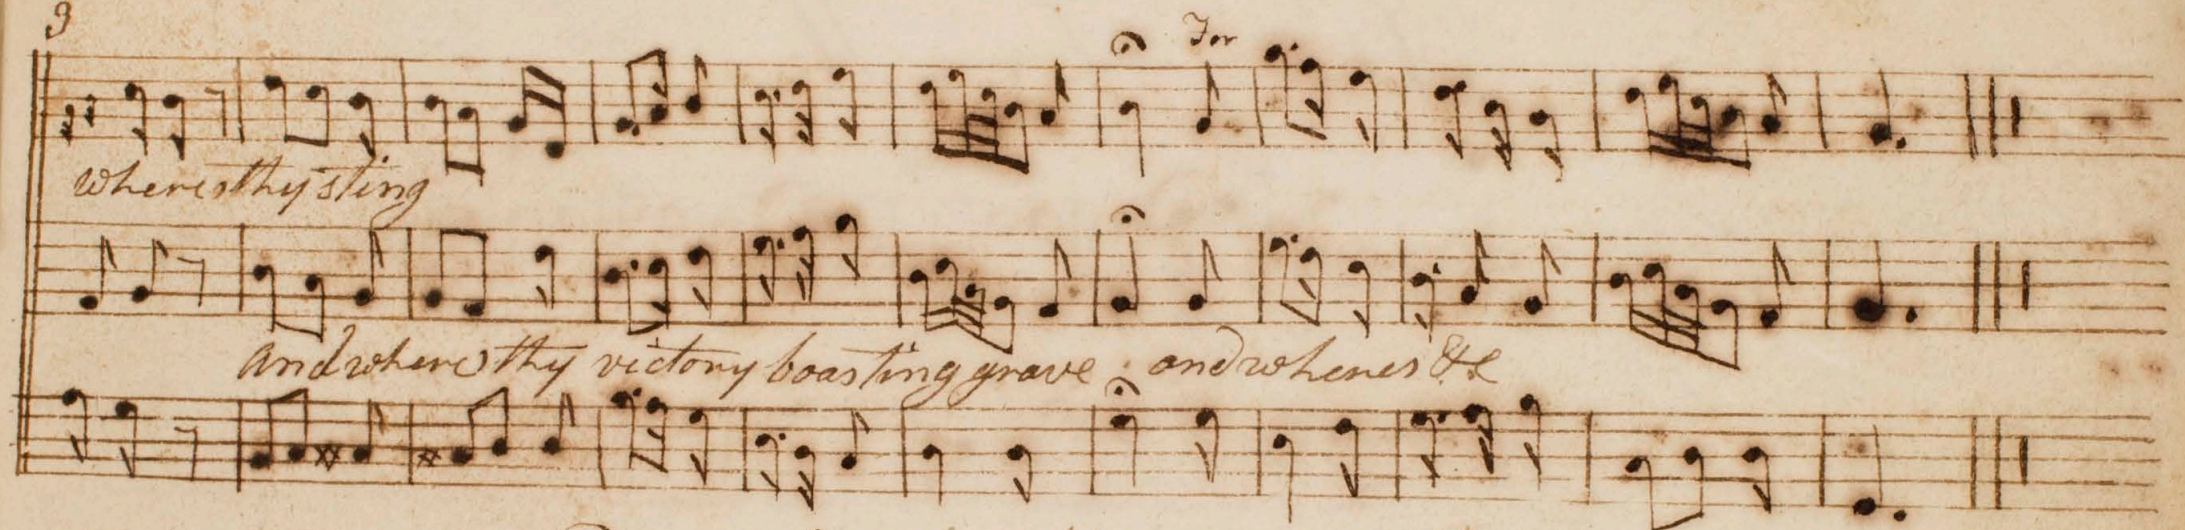 3
For
wheres thy sting
and wheres thy victory boasting grave and wheres &c